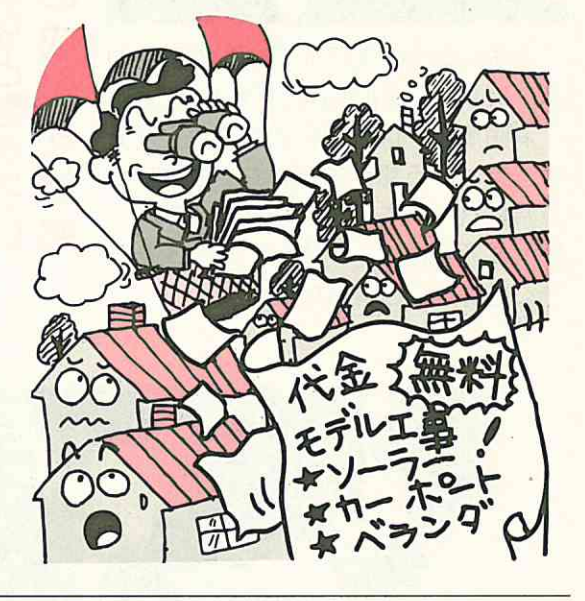 代金 無料
モデル工事!
★ソーラー
★カーポート
★ベランダ